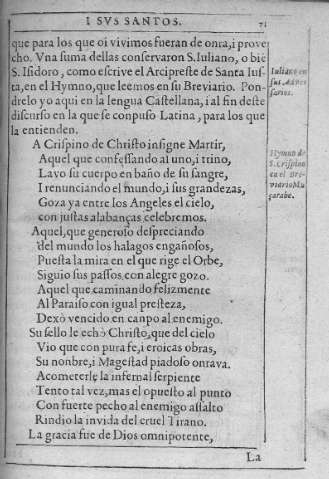 I SVS SANTOS. 71
que para los que oi vivimos fueran de onra, i prove
cho. Vna suma dellas conservaron S. Iuliano, o biē
S. Isidoro, como escrive el Arcipreste de Santa Ius-
ta, en el Hymno, que leemos en su Breviario. Pon-
drelo yo aqui en la lengua Castellana, i al fin deste
discurso en la que se conpuso Latina, para los que
la entienden.
Iuliano en
sus Adver
sarios.
A Crispino de Christo insigne Martir,
Aquel que confessando al uno, i trino,
Lavo su cuerpo en baño de su sangre,
I renunciando el mundo, i sus grandezas,
Goza ya entre los Angeles el cielo,
con justas alabanças celebremos.
Hymno de
S. Crispino
en el Bre-
viario Mu
çarabe.
Aquel, que generoso despreciando
del mundo los halagos engañosos,
Puesta la mira en el que rige el Orbe,
Siguio sus passos, con alegre gozo.
Aquel que caminando felizmente
Al Paraiso con igual presteza,
Dexò vencido en canpo al enemigo.
Su sello le echò Christo, que del cielo
Vio que con pura fe, i eroicas obras,
Su nonbre, i Magestad piadoso onrava.
Acometerle la infernal serpiente
Tento tal vez, mas el opuesto al punto
Con fuerte pecho al enemigo assalto
Rindio la invida del cruel Tirano.
La gracia fue de Dios omnipotente,
La